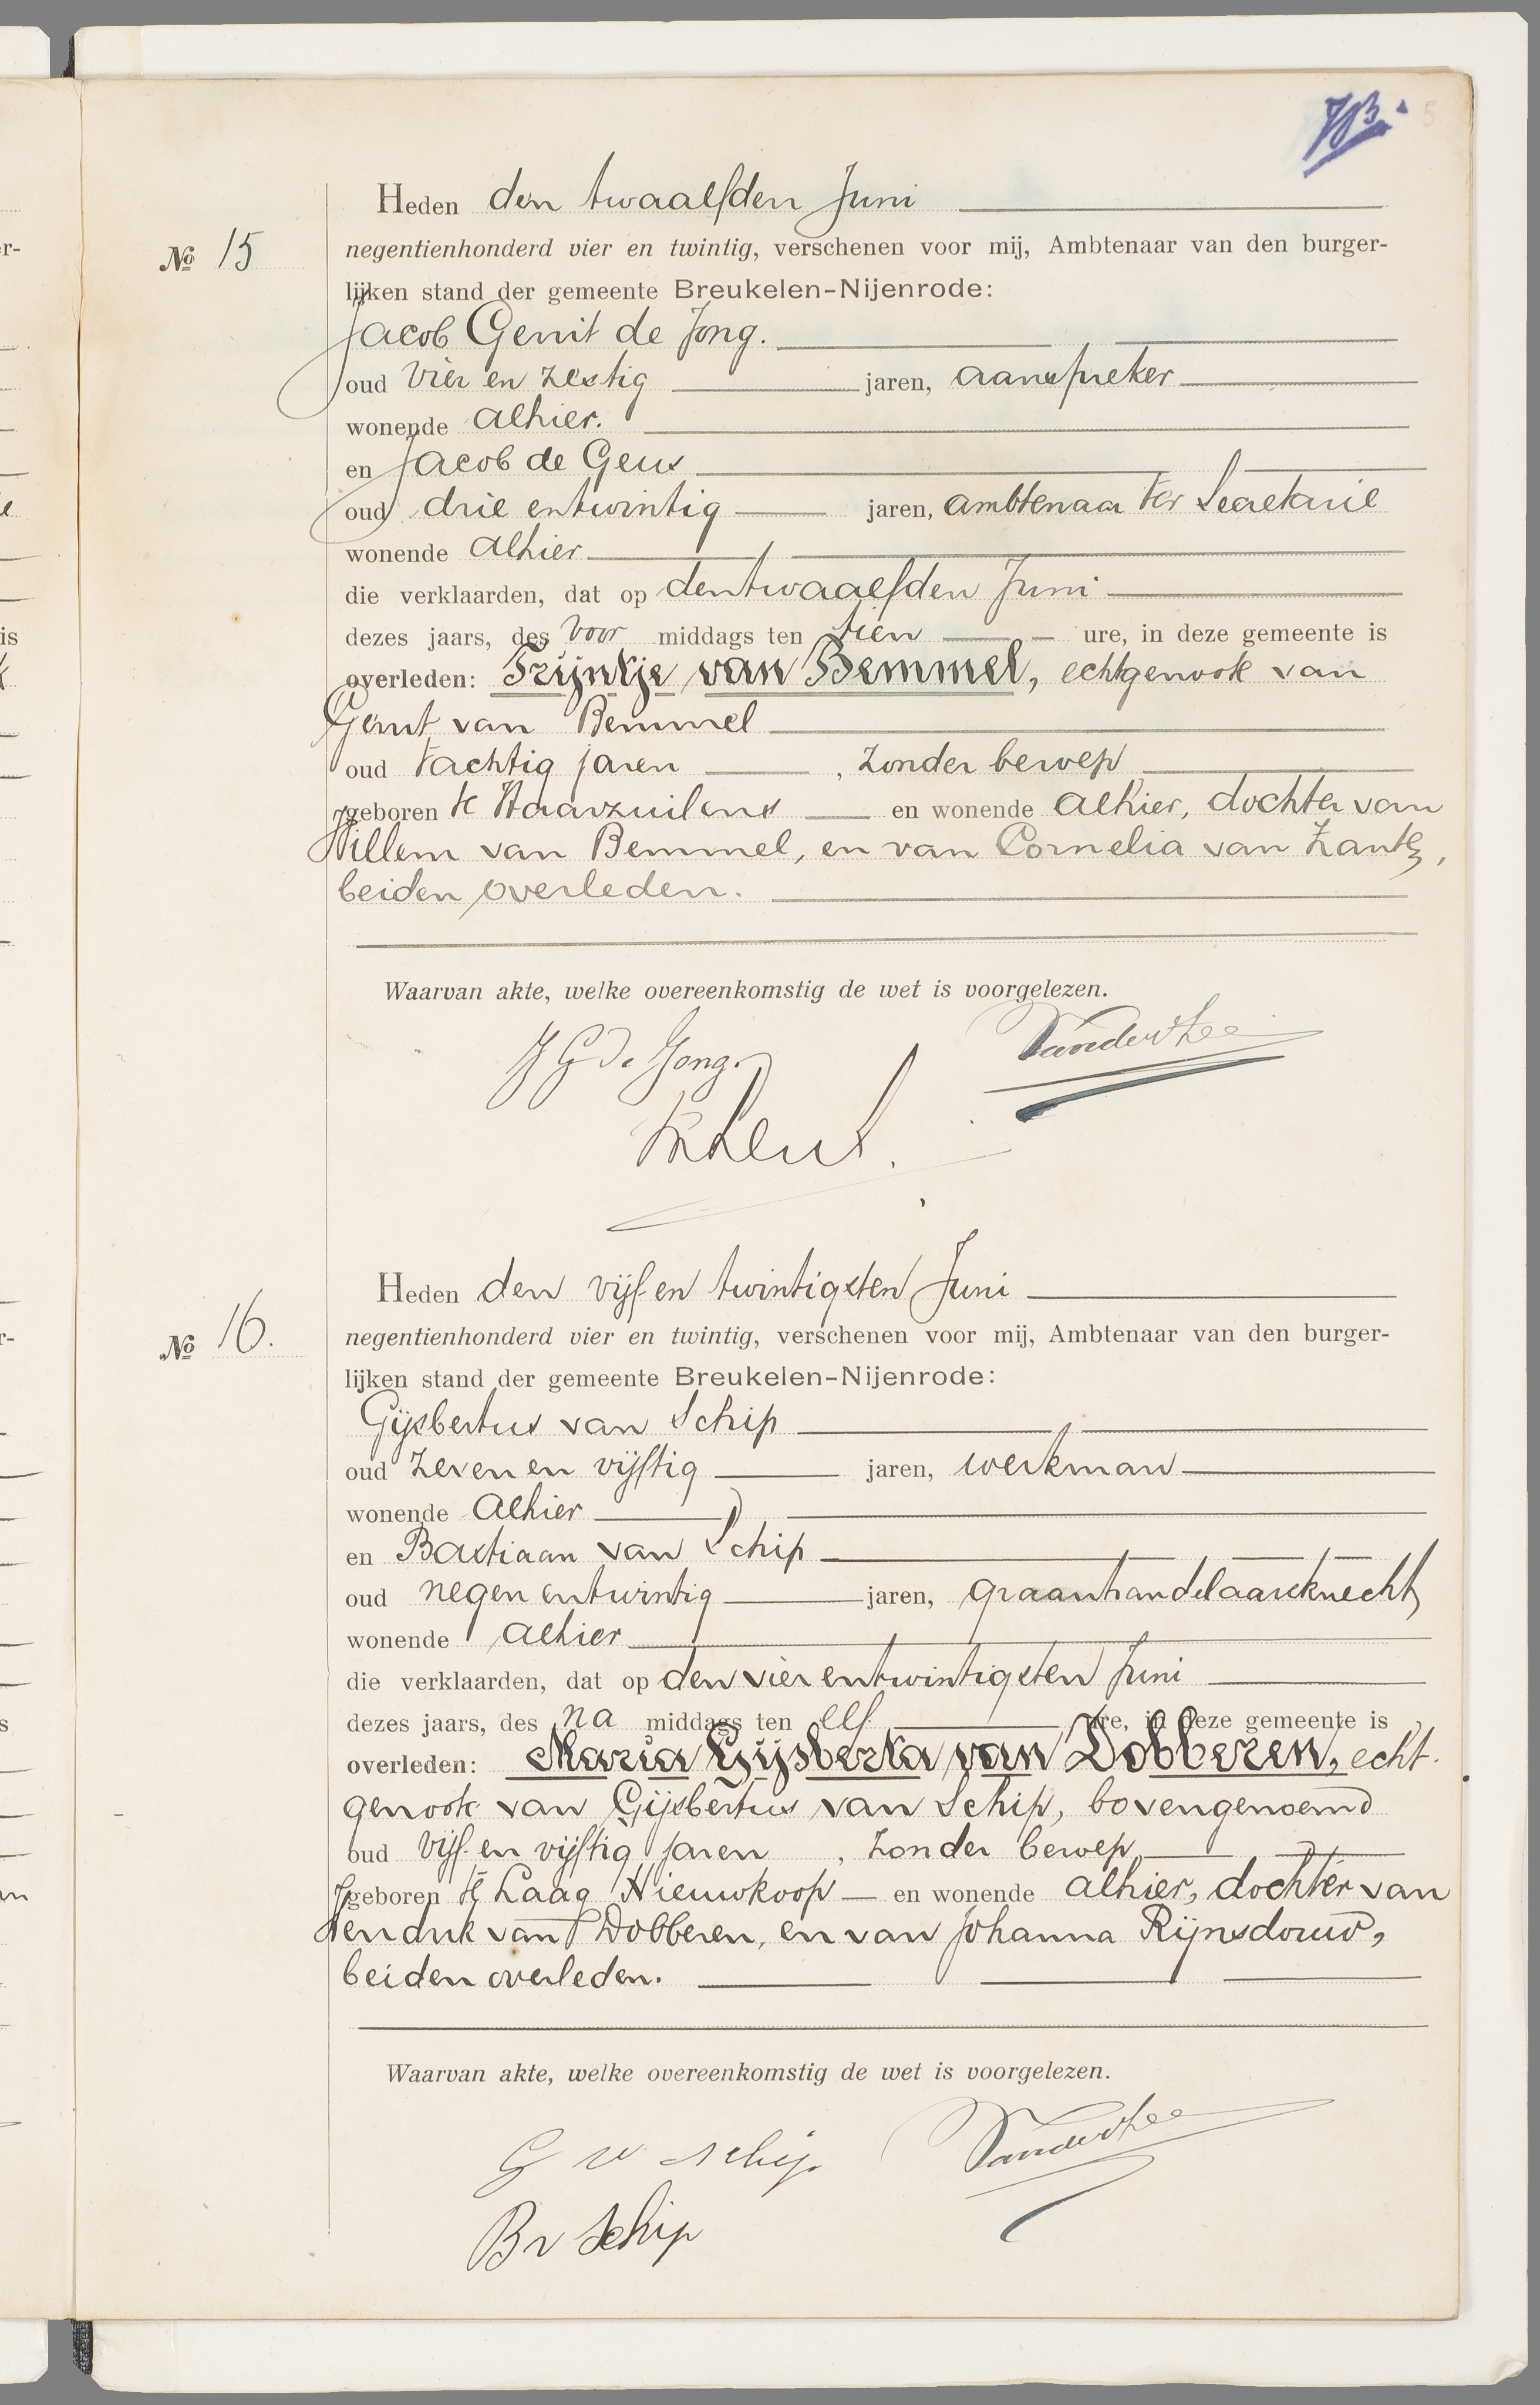 5
Heden den twaalfden Juni
No 15
negentienhonderd vier en twintig, verschenen voor mij, Ambtenaar van den burger-
lijken stand der gemeente Breukelen-Nijenrode:
Jacob Gerrit de Jong.
oud vier en zestig jaren, aanspreker
wonende alhier.
en Jacob de Geus
oud drie en twintig jaren, ambtenaar ter Secretarie
wonende alhier
die verklaarden, dat op den twaalfden Juni
dezes jaars, des voor middags ten tien ure, in deze gemeente is
overleden: Trijntje van Bemmel, echtgenoote van
Gerrit van Bemmel
oud tachtig jaren, zonder beroep
geboren te Haarzuilens en wonende alhier, dochter van
Willem van Bemmel, en van Cornelia van
beiden overleden.
Waarvan akte, welke overeenkomstig de wet is voorgelezen.
J G de Jong
Heden den vijf en twintigsten Juni
No 16.
negentienhonderd vier en twintig, verschenen voor mij, Ambtenaar van den burger-
lijken stand der gemeente Breukelen-Nijenrode:
Gijsbertus van Schip
oud zeven en vijftig jaren, werkman
wonende alhier
en Bastiaan van Schip
oud negen en twintig jaren, graanhandelaarsknecht
wonende alhier
die verklaarden, dat op den vier en twintigsten Juni
dezes jaars, des na middags ten elf ure, in deze gemeente is
overleden: Maria Gijsberta van Dobberen, echt-
genoote van Gijsbertus van Schip, bovengenoemd
oud vijf en vijftig jaren, zonder beroep
geboren te Laag Nieuwkoop en wonende alhier, dochter van
Hendrik van Dobberen, en van Johanna Rijnsdouw,
beiden overleden.
Waarvan akte, welke overeenkomstig de wet is voorgelezen.
G v Schip
B v Schip